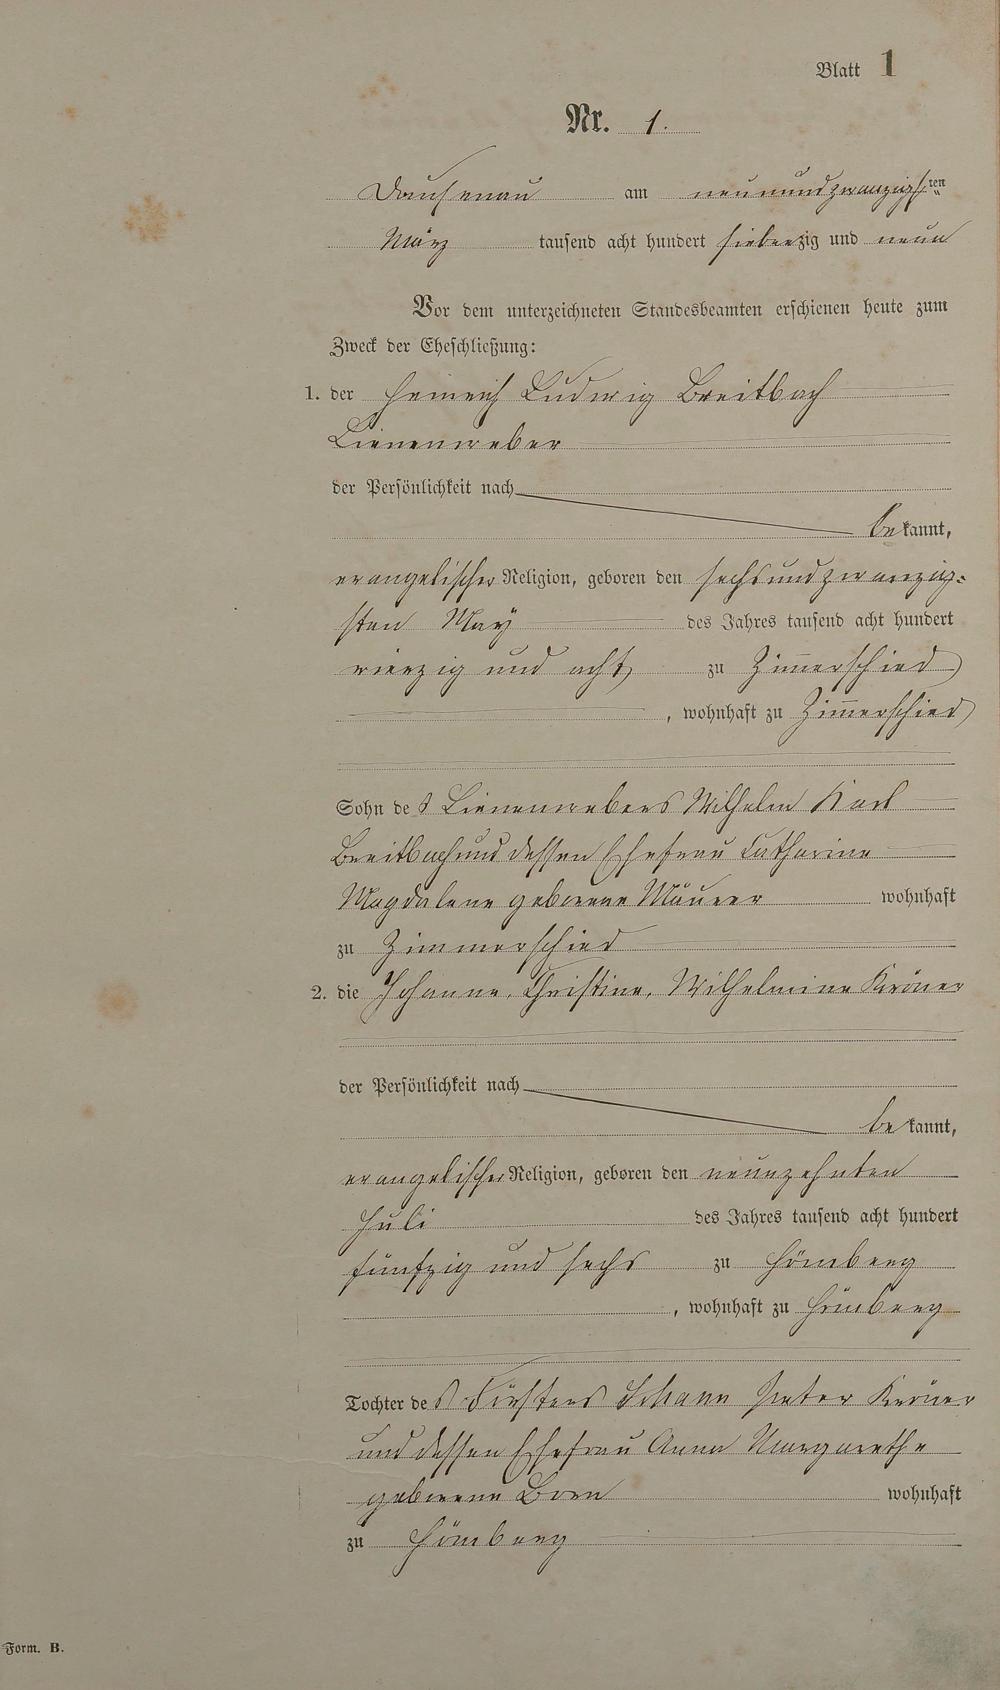 Blatt 1
Nr. 1.
Dausenau am neunundzwanzigsten
März tausend acht hundert siebenzig und neun
Vor dem unterzeichneten Standesbeamten erschienen heute zum
Zweck der Eheschließung:
1. der Heinrich Ludwig Breitbach
Leinenweber
der Persönlichkeit nach
bekannt,
evangelischer Religion, geboren den sechsundzwanzig-
sten May des Jahres tausend acht hundert
vierzig und acht zu Zimmerschied
, wohnhaft zu Zimmerschied
Sohn des Leinenwebers Wilhelm Karl
Breitbach und dessen Ehefrau Catharine
Magdalene geborene Mäurer wohnhaft
zu Zimmerschied
2. die Johanne, Christine, Wilhelmine Kröner
der Persönlichkeit nach
bekannt,
evangelischer Religion, geboren den neunzehnten
Juli des Jahres tausend acht hundert
fünfzig und sechs zu Hömberg
, wohnhaft zu Hömberg
Tochter des Försters Johann Peter Kröner
und dessen Ehefrau Anna Margarethe
geborene Born wohnhaft
zu Hömberg
Form. B.